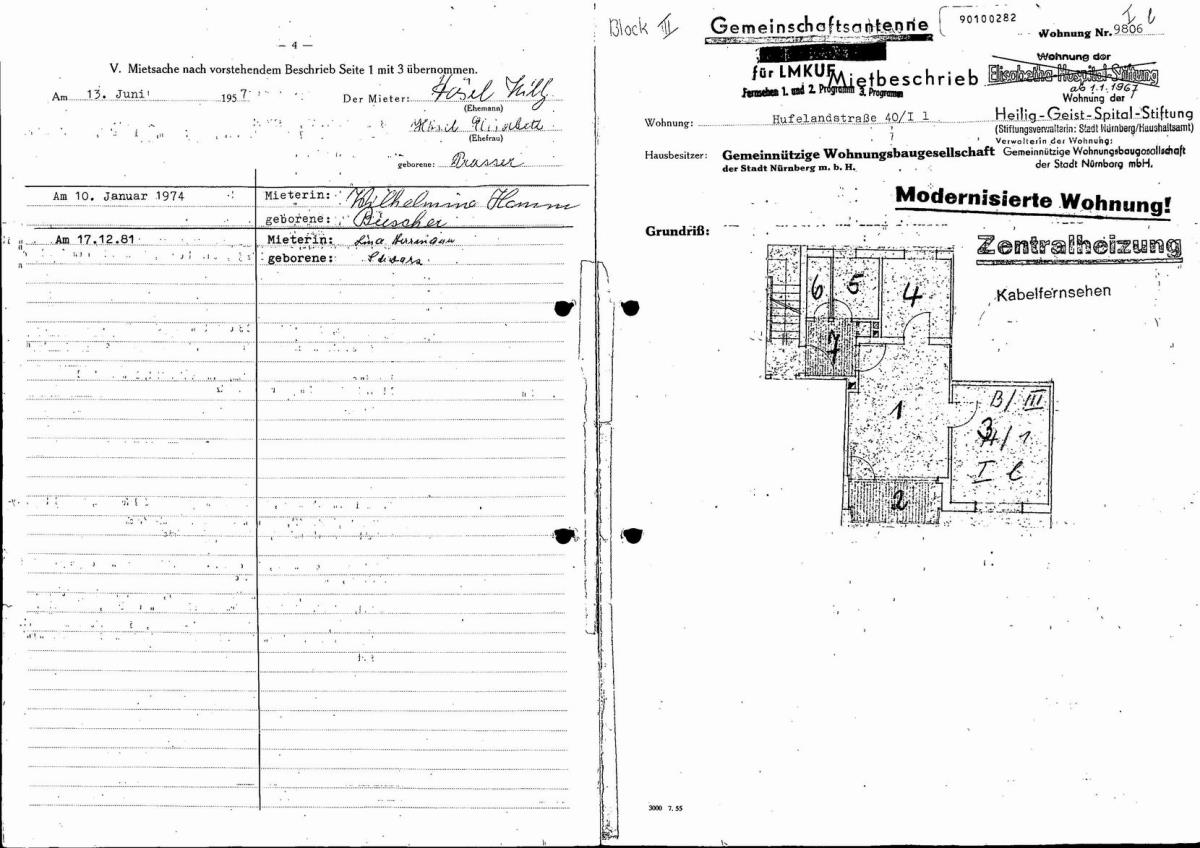 — 4 —
V. Mietsache nach vorstehendem Beschrieb Seite 1 mit 3 übernommen.
Am 13. Juni 1957 Der Mieter:
(Ehemann)
(Ehefrau)
geborene: Drasser
Am 10. Januar 1974 Mieterin: Wilhelmine Hamm
geborene: Büscher
Am 17.12.81 Mieterin: Lina Herrmann
geborene:
Block III
Gemeinschaftsantenne
90100282
I l
Wohnung Nr. 9806
für LMKUF
Mietbeschrieb
Fernsehen 1. und 2. Programm 3. Programm
Wohnung der
Elisabetha-Hospital-Stiftung
ab 1.1.1967
Wohnung der
Heilig-Geist-Spital-Stiftung
(Stiftungsverwalterin: Stadt Nürnberg/Haushaltsamt)
Verwalterin der Wohnung:
Gemeinnützige Wohnungsbaugesellschaft
der Stadt Nürnberg mbH.
Wohnung: Hufelandstraße 40/I l
Hausbesitzer: Gemeinnützige Wohnungsbaugesellschaft
der Stadt Nürnberg m. b. H.
Modernisierte Wohnung!
Grundriß:
Zentralheizung
Kabelfernsehen
6 5 4
7
1
B/III
3
H/1
I l
2
3000 7. 55